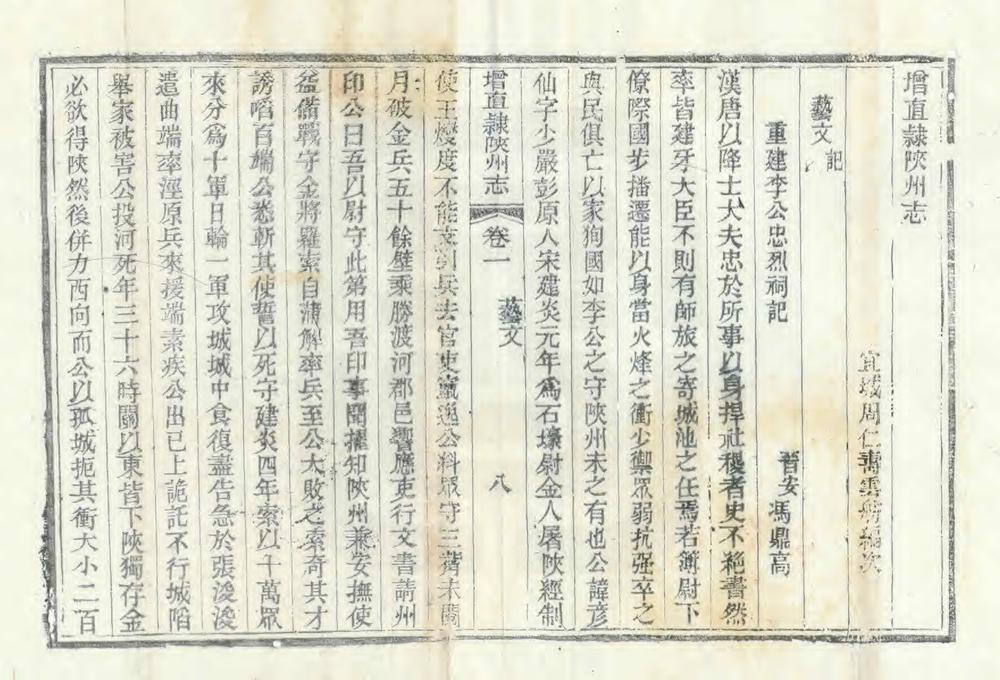 增直隸陝州志
宜城周仁壽雲舫編次
藝文 記
重建李公忠烈祠記 晉安 馮鼎高
漢唐以降士大夫忠於所事以身捍社稷者史不絕書然
率皆建牙大臣不則有師旅之寄城池之任焉若簿尉下
僚際國步播遷能以身當火烽之衝少禦眾弱抗强卒之
與民俱亡以家狥國如李公之守陝州未之有也公諱彦
仙字少嚴彭原人宋建炎元年爲石壕尉金人屠陝經制
增直隸陝州志 卷一 藝文 八
使王㸅度不能支引兵去官吏竄逸公料眾守三觜未閱
月破金兵五十餘壁乘勝渡河郡邑響應吏行文書請州
印公曰吾以尉守此第用吾印事聞擢知陝州兼安撫使
益備戰守金將羅索自蒲解率兵至公大敗之索奇其才
誘啗百端公悉斬其使誓以死守建炎四年索以十萬眾
來分爲十軍日輪一軍攻城城中食復盡告急於張浚浚
遣曲端率涇原兵來援端素疾公出已上詭託不行城陷
舉家被害公投河死年三十六時關以東皆下陝獨存金
必欲得陝然後併力西向而公以孤城扼其衝大小二百